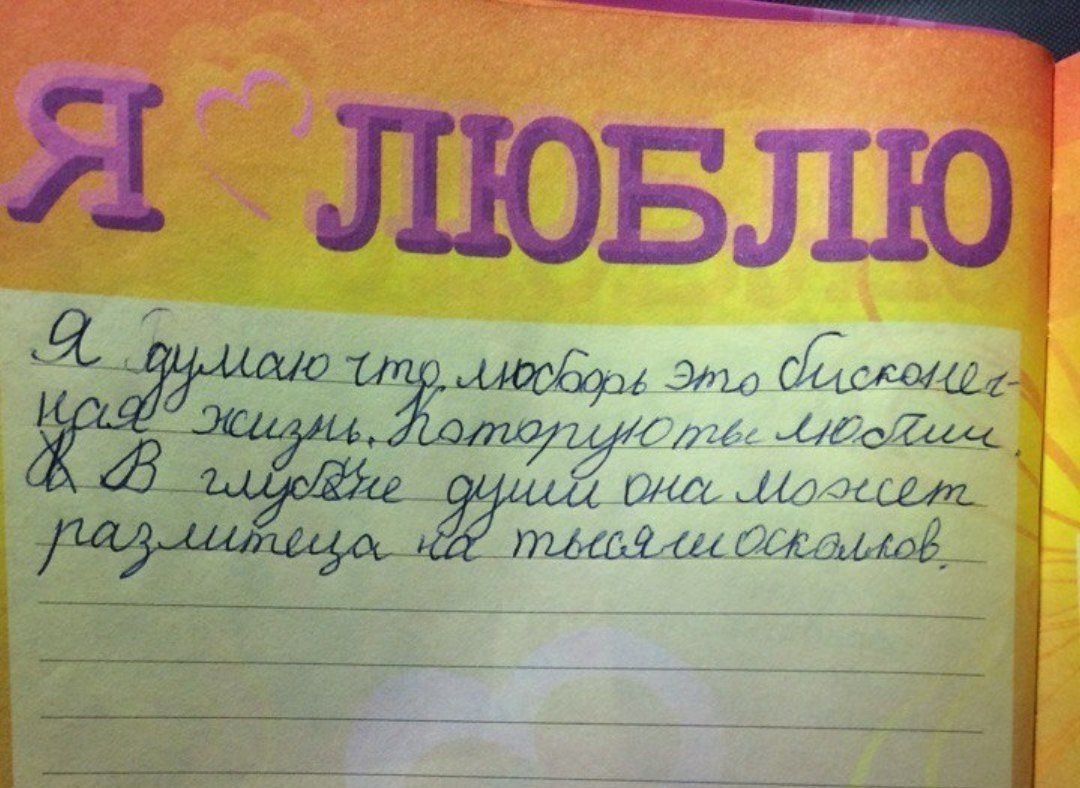 Я ЛЮБЛЮ
Я думаю что любовь это бисконеч-
ная жизнь. Которую ты любиш.
В глубине души она может
разлитеца на тысячи осколков.